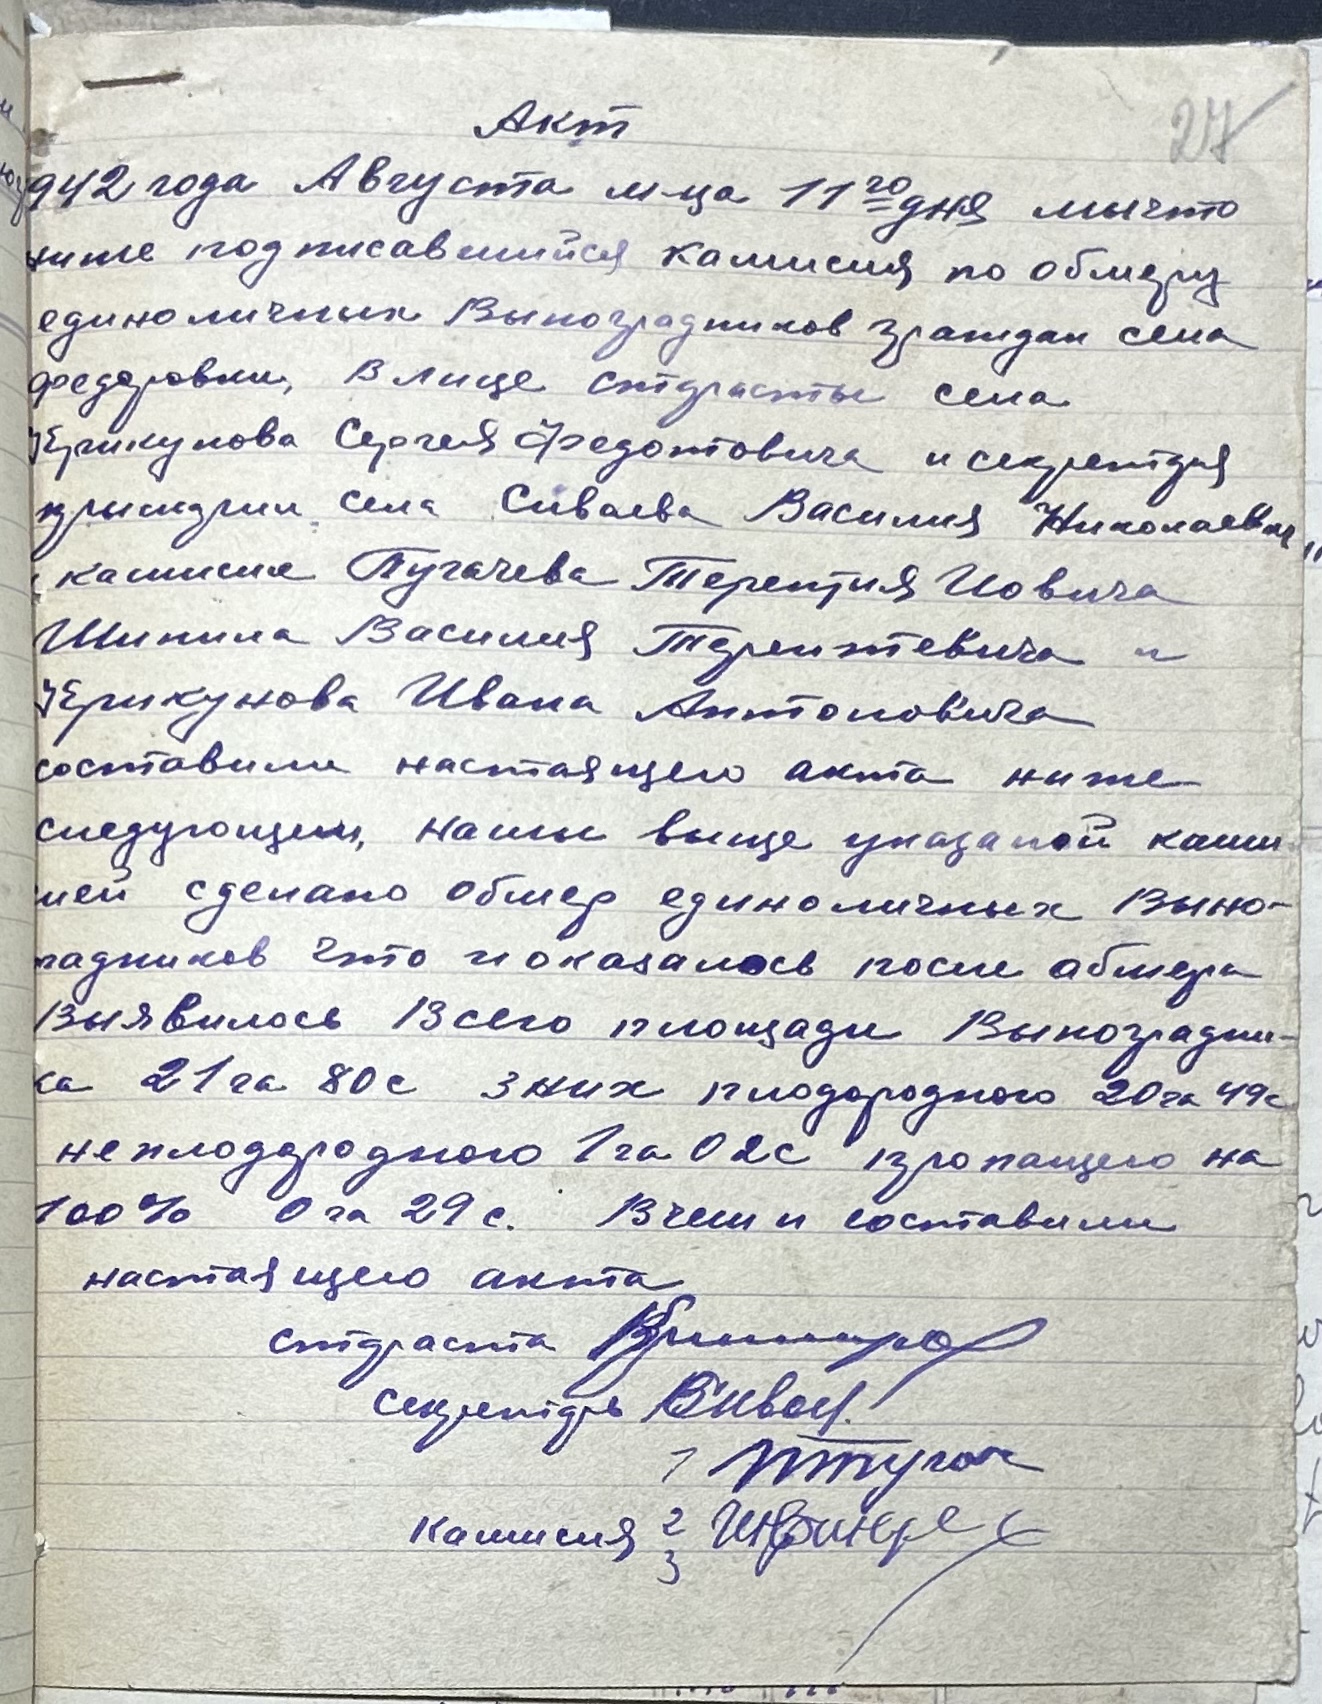 27
Акт
942 года Августа м-ца 11го дня мычто
ниже подписавшийся камисия по обмеру
единоличных Выноградников граждан села
Федоровки, в лице старосты села
Крикунова Сергея Федотовича и секретаря
села Сиваева Василия Николаевич
камисия Пугачева Терентия Иовича
Шипила Василия Терентьевича и
Крикунова Ивана Антоновича
составили настаящего акта ниже
следующем, нами выще указаной ками
сией сделано обмер единоличных Выно-
градников что показалось после абмера
Выявилось Всего площади Выноградни-
ка 21 га 80 с з них плодородного 20 га 49 с
неплодородного 1 га 02 с пропащего на
100% 0 га 29 с. Вчем и составили
настаящего акта
староста
секретарь
1
Камисия 2
3